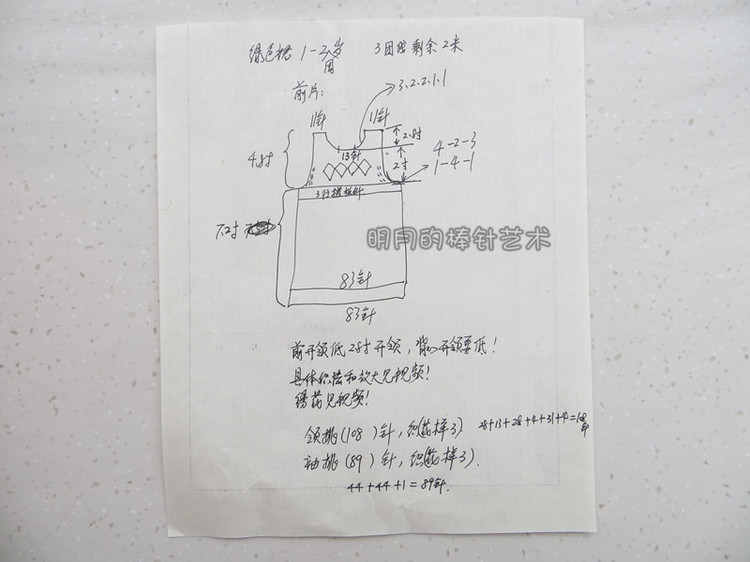 绿色裙 1-2岁 3团线剩余2米
周
前片:
3.2.2.1.1
11针 11针
2.8寸
4.8寸
13针
2寸
4-2-3
1-4-1
3行搓板针
7.2寸
明月的棒针艺术
83针
83针
前开领低2.8寸开领,背心开领要低!
具体织法和放大见视频!
绣花见视频!
领挑(108)针,织花样3)
28+13+28+4+31+4=108针
袖挑(89)针,织花样3).
44+44+1=89针.